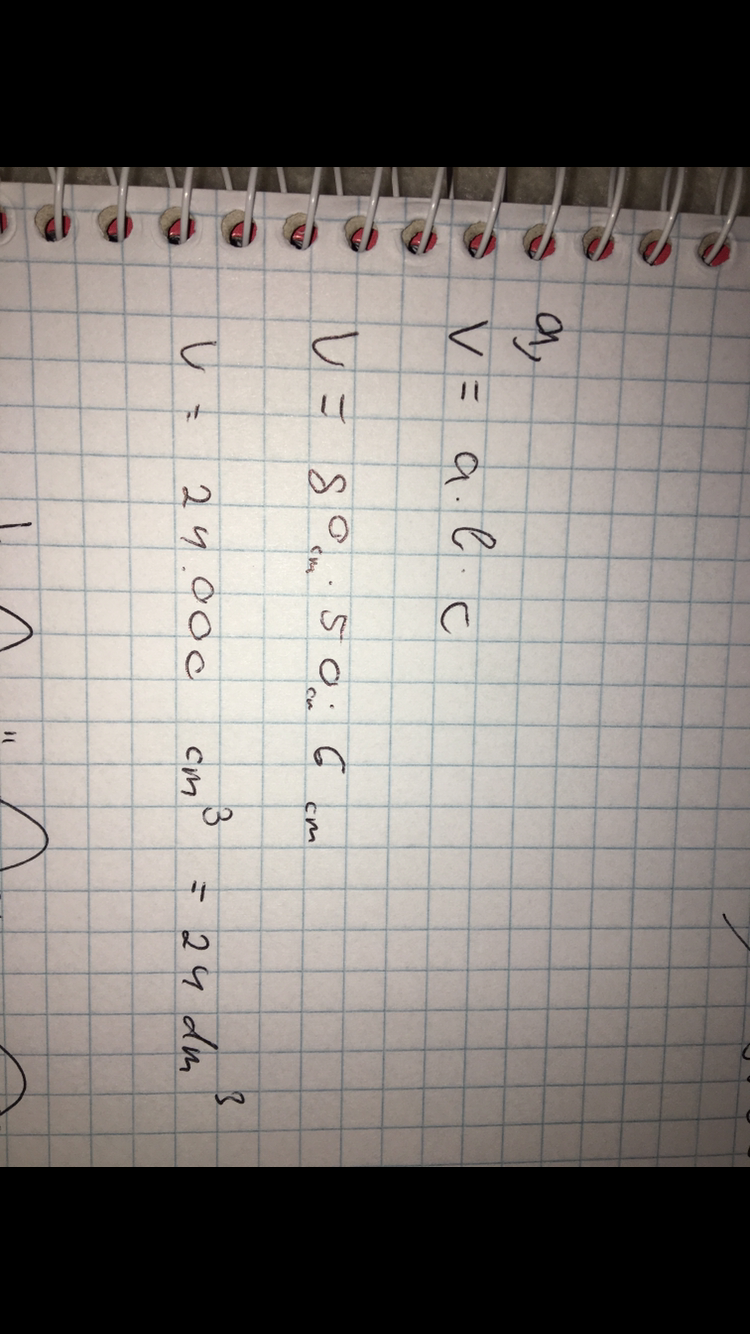 a,
V = a · b · c
V = 80 cm · 50 cm · 6 cm
V = 24.000 cm³ = 24 dm³